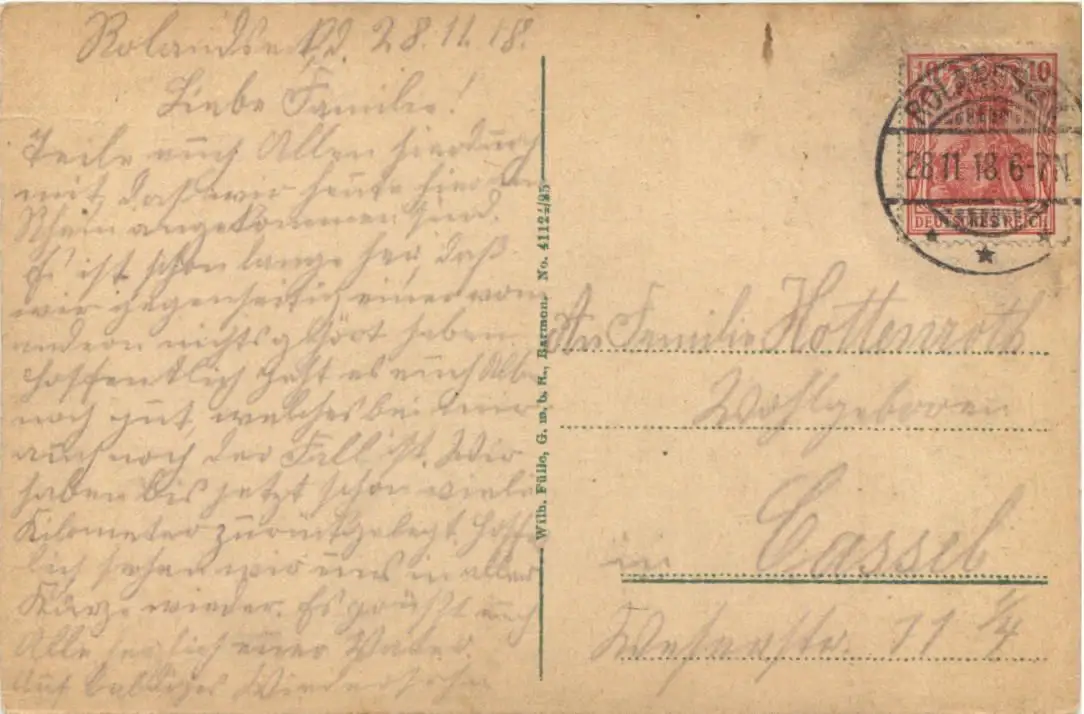 Rolandseck, d. 28.11.18.
Liebe Familie!
Teile euch Allen hierdurch
mit, daß wir heute hier am
Rhein angekommen sind.
Es ist schon lange her, daß
wir gegenseitig einer vom
andern nichts gehört haben.
Hoffentlich geht es euch Allen
noch gut, welches bei mir
auch noch der Fall ist. Wir
haben bis jetzt schon viele
Kilometer zurückgelegt. Hoffent-
lich sehen wir uns in aller
Kürze wieder. Es grüßt euch
Alle herzlich euer Vater
Auf baldiges Wiedersehn
Wilh. Fülle, G. m. b. H., Barmen. No. 41124/25
10 10
DEUTSCHES REICH
ROLANDSECK
28 11 18. 6-7N
An Familie Hottenroth
Wohlgeboren
in Cassel
Weserstr. 11 1/4